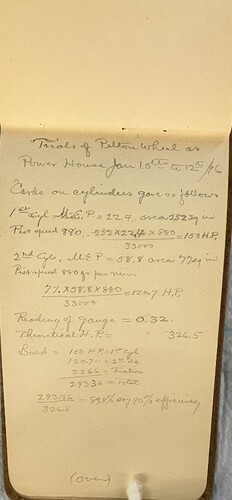 Trials of Pelton Wheel as
Power House Jan 10th to 12th /96
Cards on cylinders gave as follows
1st Cyl M.E.P = 22.4. area 252 sq in
Pist speed 880. 252 x 22.4 x 880 = 150 H.P.
33000
2nd Cyl, M.E.P = 58.8 area 77 sq in
Pist speed 880 ft per min.
77 x 58.8 x 880 = 120.7 H.P.
33000
Reading of gauge = 0.32.
Theoretical H.P. = 326.5
Load = 150 H.P. 1st Cyl
120.7 = 2nd do
22.66 = Friction
293.36 = Total
293.36 = 89.8% say 90% efficiency
326.5
(over)